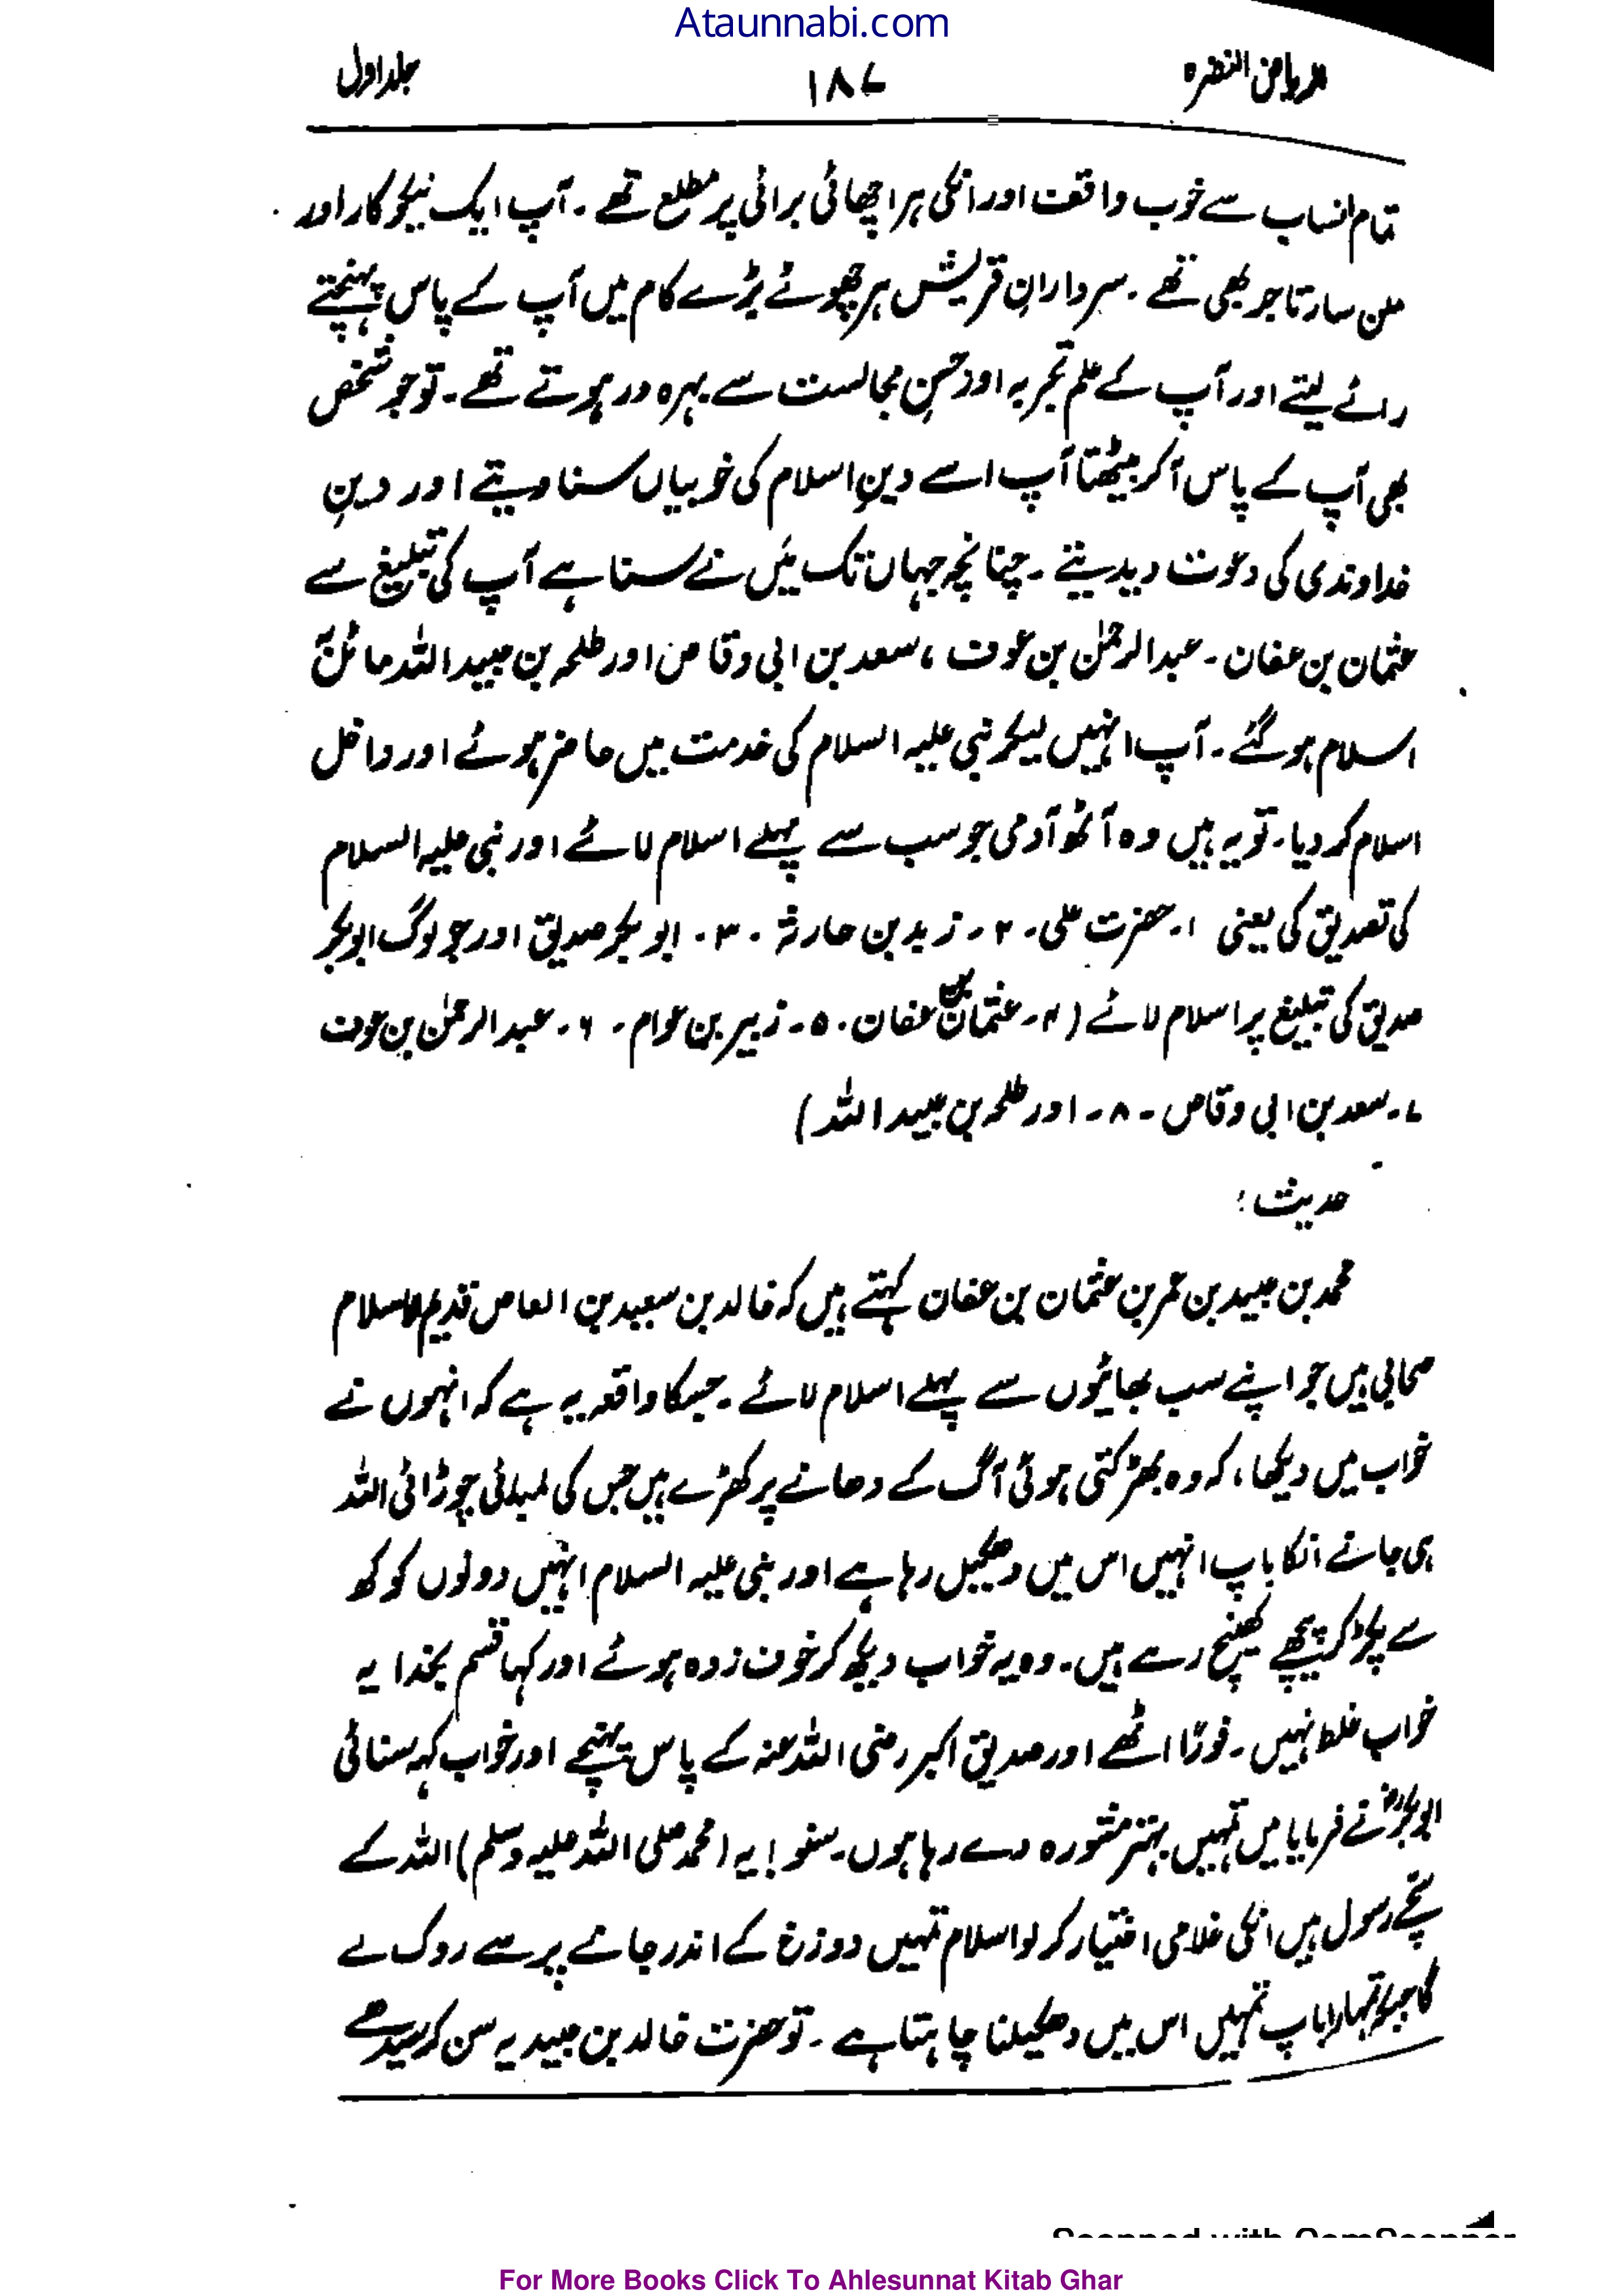 Ataunnabi.com
الریاض النضرہ
۱۸۷
جلد اول
تمام انساب سے خوب واقف اور انکی ہر اچھائی برائی پر مطلع تھے ۔ آپ ایک نیکو کار اور
ملن سار تاجر بھی تھے ۔ سردارانِ قریش ہر چھوٹے بڑے کام میں آپ کے پاس پہنچتے
رائے لیتے اور آپ کے علم تجربہ اور حسنِ مجالست سے بہرہ ور ہوتے تھے ۔ تو جو شخص
بھی آپ کے پاس آکر بیٹھتا آپ اسے دینِ اسلام کی خوبیاں سنا دیتے اور دینِ
خداوندی کی دعوت دیدیتے ۔ چنانچہ جہاں تک میں نے سنا ہے آپ کی تبلیغ سے
عثمان بن عفان ۔ عبدالرحمٰن بن عوف ، سعد بن ابی وقاص اور طلحہ بن عبید اللہ مائل بہ
اسلام ہو گئے ۔ آپ انہیں لیکر نبی علیہ السلام کی خدمت میں حاضر ہوئے اور داخل
اسلام کر دیا ۔ تو یہ ہیں وہ آٹھ آدمی جو سب سے پہلے اسلام لائے اور نبی علیہ السلام
کی تصدیق کی یعنی ۱۔ حضرت علی ۔ ۲ ۔ زید بن حارثہ ۔ ۳ ۔ ابو بکر صدیق اور جو لوگ ابو بکر
صدیق کی تبلیغ پر اسلام لائے ( ۴ ۔ عثمان بن عفان ۔ ۵ ۔ زبیر بن عوام ۔ ۶ ۔ عبدالرحمٰن بن عوف
۷ ۔ سعد بن ابی وقاص ۔ ۸ ۔ اور طلحہ بن عبید اللہ )
حدیث :
محمد بن عبید بن عمر بن عثمان بن عفان کہتے ہیں کہ خالد بن سعید بن العاص قدیم الاسلام
صحابی ہیں جو اپنے سب بھائیوں سے پہلے اسلام لائے ۔ جسکا واقعہ یہ ہے کہ انہوں نے
خواب میں دیکھا ، کہ وہ بھڑکتی ہوئی آگ کے دھانے پر کھڑے ہیں جس کی لمبائی چوڑائی اللہ
ہی جانے انکا باپ انہیں اس میں دھکیل رہا ہے اور نبی علیہ السلام انہیں دونوں کوکھ
سے پکڑ کر پیچھے کھینچ رہے ہیں ۔ وہ یہ خواب دیکھ کر خوف زدہ ہوئے اور کہا قسم بخدا یہ
خواب غلط نہیں ۔ فورًا اٹھے اور صدیق اکبر رضی اللہ عنہ کے پاس پہنچے اور خواب کہہ سنائی
ابوبکرؓ نے فرمایا میں تمہیں بہتر مشورہ دے رہا ہوں ۔ سنو ! یہ ( محمد صلی اللہ علیہ وسلم ) اللہ کے
سچے رسول ہیں انکی غلامی اختیار کر لو اسلام تمہیں دوزخ کے اندر جانے پر سے روک لے
گا جبکہ تمہارا باپ تمہیں اس میں دھکیلنا چاہتا ہے ۔ تو حضرت خالد بن عبید یہ سن کر سیدھے
Scanned with CamScanner
For More Books Click To Ahlesunnat Kitab Ghar